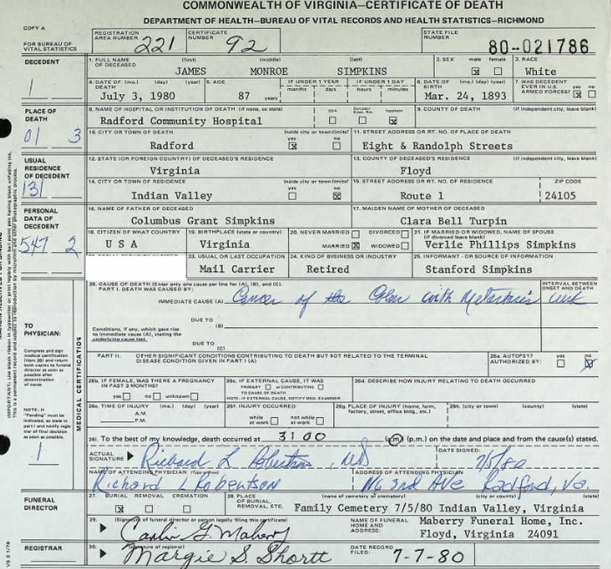 COMMONWEALTH OF VIRGINIA—CERTIFICATE OF DEATH
DEPARTMENT OF HEALTH—BUREAU OF VITAL RECORDS AND HEALTH STATISTICS—RICHMOND
COPY A
FOR BUREAU OF VITAL STATISTICS
REGISTRATION AREA NUMBER 221 CERTIFICATE NUMBER 92 STATE FILE NUMBER 80-021786
DECEDENT
1. FULL NAME OF DECEASED (first) (middle) (last) 2. SEX male female 3. RACE
JAMES MONROE SIMPKINS White
1
4. DATE OF DEATH (mo.) (day) (year) 5. AGE IF UNDER 1 YEAR IF UNDER 1 DAY 6. DATE OF BIRTH (mo.) (day) (year) 7. WAS DECEDENT EVER IN U.S. ARMED FORCES? yes no
July 3, 1980 87 years months days hours minutes Mar. 24, 1893
PLACE OF DEATH
8. NAME OF HOSPITAL OR INSTITUTION OF DEATH (if none, so state) 9. COUNTY OF DEATH (if independent city, leave blank)
Radford Community Hospital
01 3
10. CITY OR TOWN OF DEATH inside city or town limits? yes no 11. STREET ADDRESS OR RT. NO. OF PLACE OF DEATH
Radford Eight & Randolph Streets
USUAL RESIDENCE OF DECEDENT
12. STATE (OR FOREIGN COUNTRY) OF DECEASED'S RESIDENCE 13. COUNTY OF DECEASED'S RESIDENCE (if independent city, leave blank)
Virginia Floyd
131
14. CITY OR TOWN OF RESIDENCE inside city or town limits? yes no 15. STREET ADDRESS OR RT. NO. OF RESIDENCE ZIP CODE
Indian Valley Route 1 24105
PERSONAL DATA OF DECEDENT
16. NAME OF FATHER OF DECEASED 17. MAIDEN NAME OF MOTHER OF DECEASED
Columbus Grant Simpkins Clara Bell Turpin
547 2
18. CITIZEN OF WHAT COUNTRY 19. BIRTHPLACE (state or country) 20. NEVER MARRIED DIVORCED MARRIED WIDOWED 21. IF MARRIED OR WIDOWED, NAME OF SPOUSE (if divorced leave blank)
U S A Virginia Verlie Phillips Simpkins
23. USUAL OR LAST OCCUPATION 24. KIND OF BUSINESS OR INDUSTRY 25. INFORMANT - OR SOURCE OF INFORMATION
Mail Carrier Retired Stanford Simpkins
26. CAUSE OF DEATH (Enter only one cause per line for (A), (B), and (C).) INTERVAL BETWEEN ONSET AND DEATH
PART I. DEATH WAS CAUSED BY:
IMMEDIATE CAUSE (A) Cancer of the Colon with Metastasis
DUE TO (B)
Conditions, if any, which gave rise to immediate cause (A), stating the underlying cause last.
DUE TO (C)
TO PHYSICIAN:
MEDICAL CERTIFICATION
PART II. OTHER SIGNIFICANT CONDITIONS CONTRIBUTING TO DEATH BUT NOT RELATED TO THE TERMINAL DISEASE CONDITION GIVEN IN PART I (A)
AUTOPSY AUTHORIZED BY: yes no
IF FEMALE, WAS THERE A PREGNANCY IN PAST 3 MONTHS? yes no unknown
IF EXTERNAL CAUSE, IT WAS PRIMARY or CONTRIBUTING TO CAUSE OF DEATH
DESCRIBE HOW INJURY RELATING TO DEATH OCCURRED
TIME OF INJURY (mo.) (day) (year) A.M. P.M. INJURY OCCURRED while at work not while at work PLACE OF INJURY (home, farm, factory, street, office bldg., etc.) (city or town) (county) (state)
1
To the best of my knowledge, death occurred at 3:00 (p.m.) on the date and place and from the cause(s) stated.
ACTUAL SIGNATURE Richard L Robertson, MD DATE SIGNED: 7/5/80
NAME OF ATTENDING PHYSICIAN (Type or print) ADDRESS OF ATTENDING PHYSICIAN
Richard L Robertson 3rd Ave Radford, Va.
FUNERAL DIRECTOR
27. BURIAL REMOVAL CREMATION 28. PLACE OF BURIAL, REMOVAL, ETC. (name of cemetery or crematory) (city or county) (state)
Family Cemetery 7/5/80 Indian Valley, Virginia
29. (Signature of funeral director or person legally filing this certificate) NAME OF FUNERAL HOME AND ADDRESS: Maberry Funeral Home, Inc.
Floyd, Virginia 24091
REGISTRAR
30. (Signature of registrar) Margie S. Shortt DATE RECORD FILED: 7-7-80